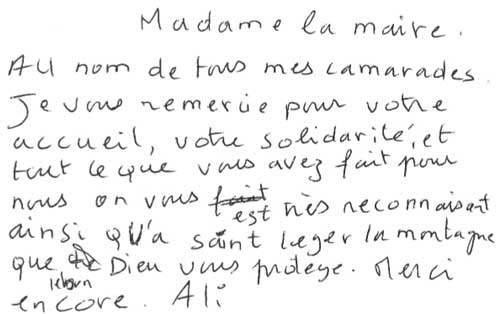 Madame la maire.
AU nom de tous mes camarades.
Je vous remercie pour votre
accueil, votre solidarité, et
tout ce que vous avez fait pour
nous on vous est très reconnaisant
ainsi qu'a saint leger la montagne
que Dieu vous protege. Merci
encore. Ali